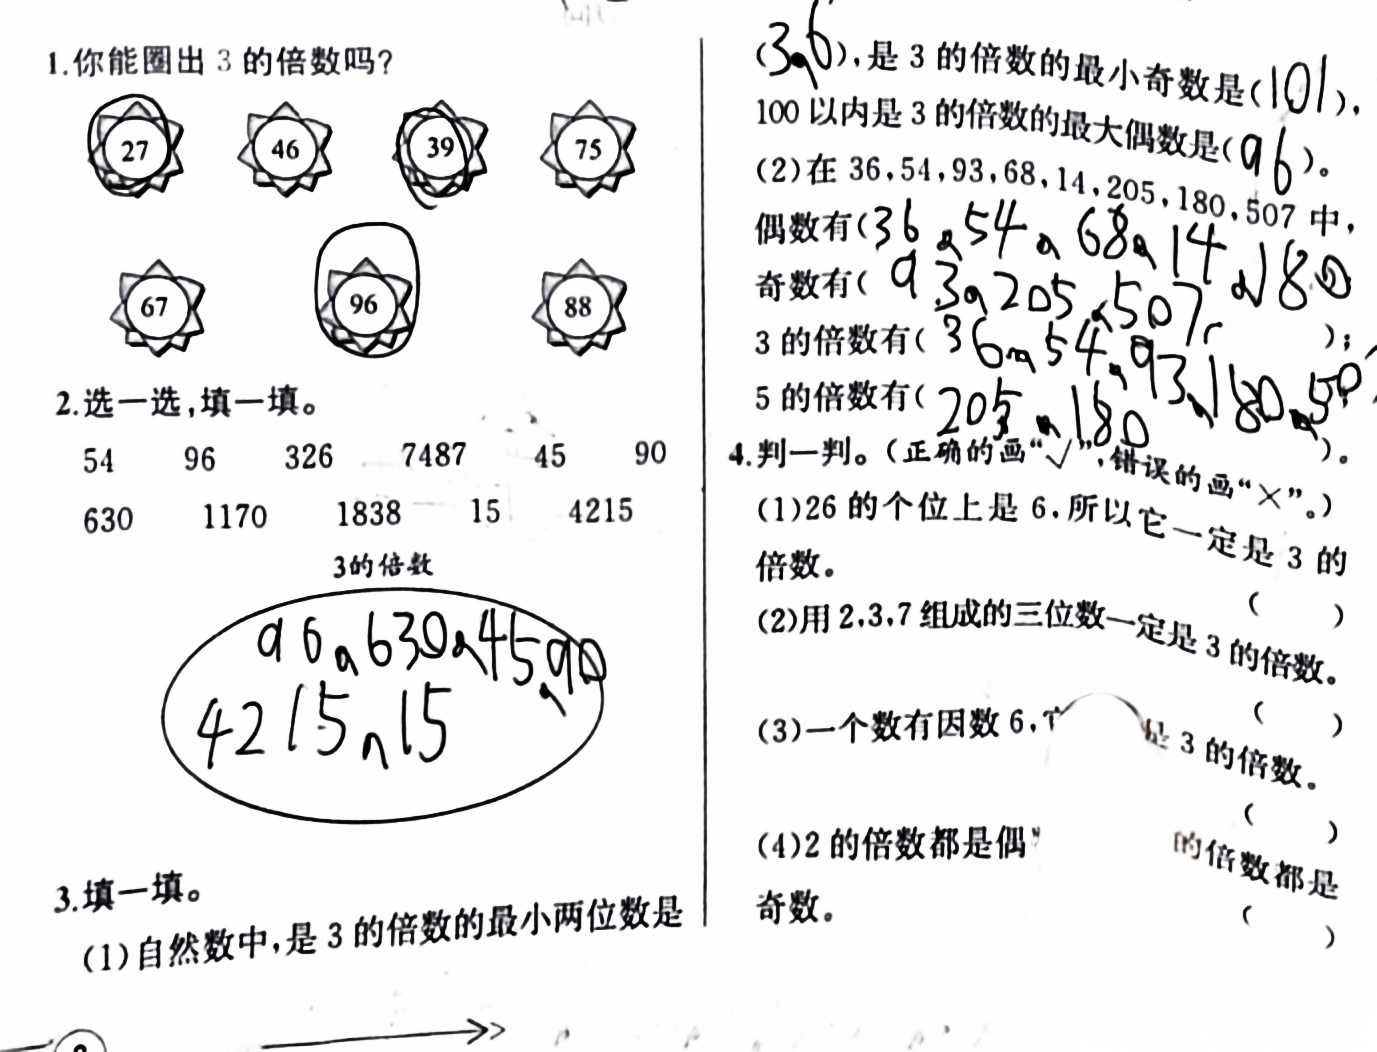 1.你能圈出 3 的倍数吗?
27 46 39 75
67 96 88
2.选一选,填一填。
54 96 326 7487 45 90
630 1170 1838 15 4215
3的倍数
96、630、45、90
4215、15
3.填一填。
(1)自然数中,是 3 的倍数的最小两位数是
(3、6),是 3 的倍数的最小奇数是(101),
100 以内是 3 的倍数的最大偶数是(96)。
(2)在 36,54,93,68,14,205,180,507 中,
偶数有(36、54、68、14、180
奇数有(93、205、507
3 的倍数有(36、54、93、180、507);
5 的倍数有(205、180)。
4.判一判。(正确的画“√”,错误的画“×”。)
(1)26 的个位上是 6,所以它一定是 3 的
倍数。
( )
(2)用 2,3,7 组成的三位数一定是 3 的倍数。
( )
(3)一个数有因数 6, 是 3 的倍数。
( )
(4)2 的倍数都是偶 的倍数都是
奇数。
( )